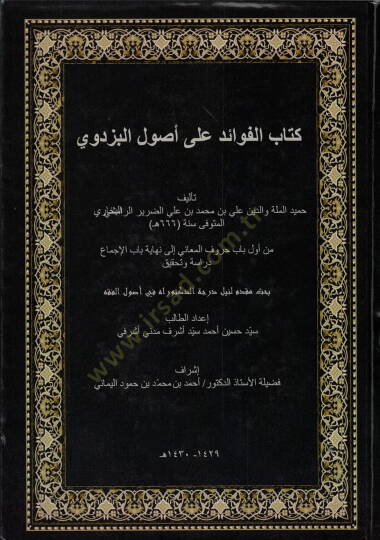 كتاب الفوائد على أصول البزدوي
تأليف
حميد الملة والدين علي بن محمد بن علي الضرير الرامشي البخاري
المتوفى سنة (٦٦٦هـ)
من أول باب حروف المعاني إلى نهاية باب الإجماع
دراسة وتحقيق
بحث مقدم لنيل درجة الدكتوراه في أصول الفقه
إعداد الطالب
سيّد حسين أحمد سيّد أشرف مدني أشرفي
إشراف
فضيلة الأستاذ الدكتور/ أحمد بن محمّد بن حمود اليماني
١٤٢٩- ١٤٣٠هـ
www.irsad.com.tr